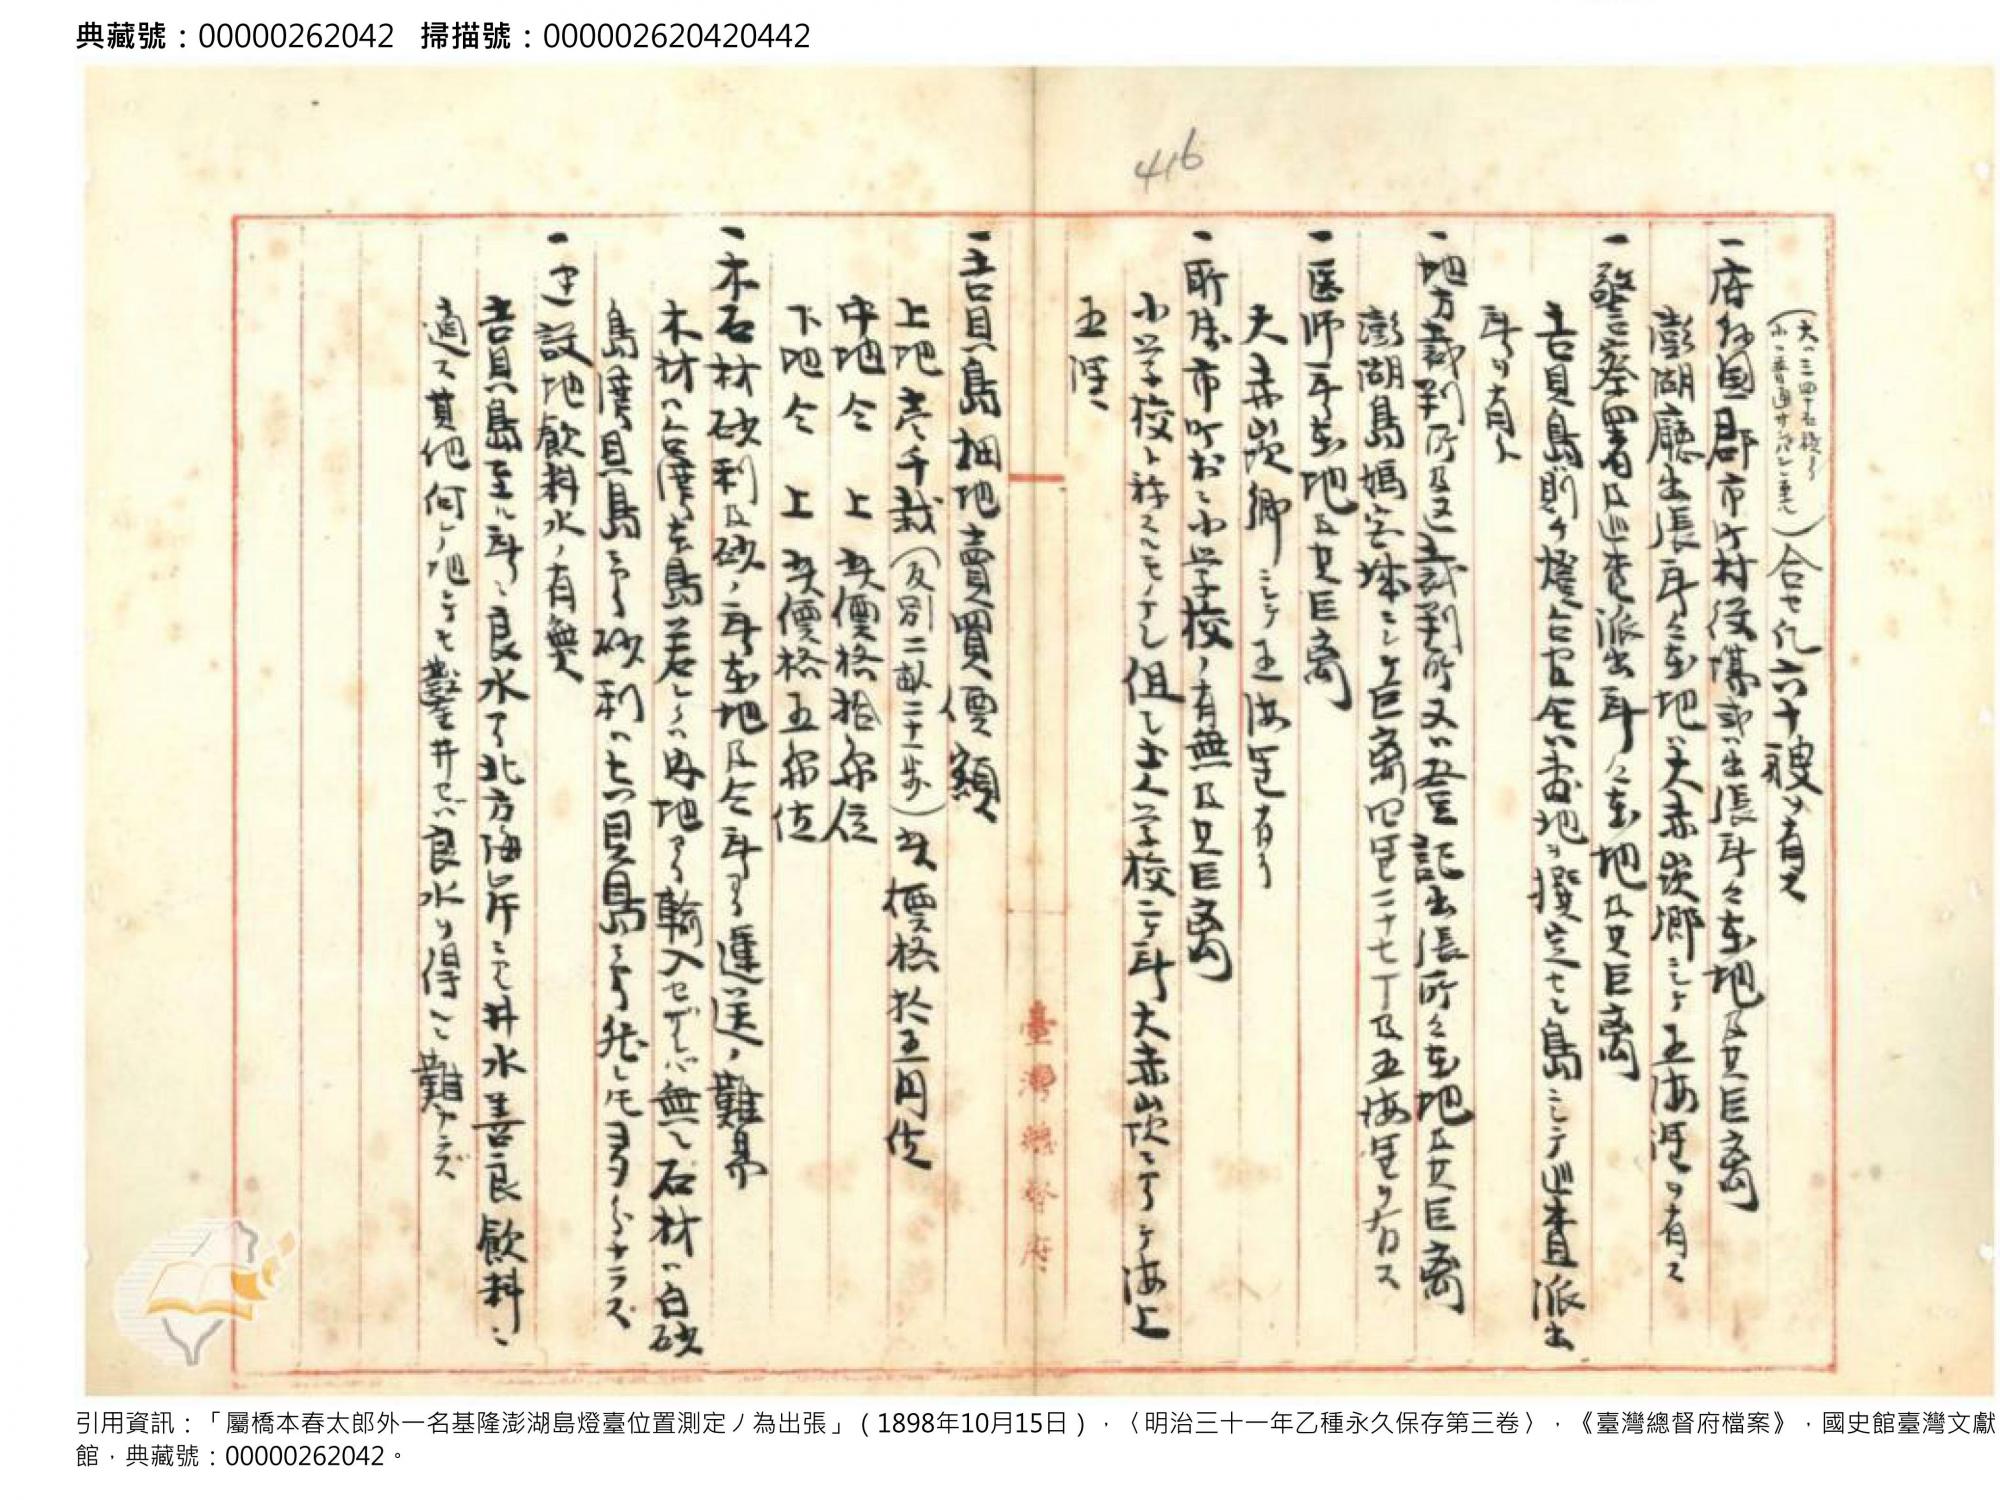 典藏號：00000262042 掃描號：000002620420442
416
合セ凡六十艘ヲ有ス
一府県国郡市町村役場或ハ出張所々在地及其巨离
澎湖廳出張所々在地ハ大赤崁郷ニシテ五海浬ヲ有ス
一警察署及巡査派出所々在地及其巨离
吉貝島則チ燈台官舎敷地ヲ撰定セシ島ニシテ巡査派出
所ヲ有ス
一地方裁判所及区裁判所又ハ登記出張所々在地及其巨离
澎湖島媽宮城ニシテ巨离四里二十七丁及五海里ヲ有ス
一医師所在地及其巨离
大赤崁郷ニシテ五海里有リ
一所属市町村小学校ノ有無及其巨离
小学校ト称スヘモノナシ但シ土人学校ニテ所大赤崁ニアリテ海上
五浬
臺灣總督府
一吉貝島畑地賣買價額
上地壱千栽（反別二畝二十一歩）此價格拾五円位
中地仝上此價格拾円位
下地仝上此價格五円位
一木石材砂利及砂ノ所在地及仝所ヨリ運送ノ難易
木材ハ台湾本島若シクハ内地ヨリ輸入セザレバ無シ石材ハ白砂
島漢貝島ニアリ砂利ハ吉貝島ニアリ然レ𪜈多分ナラズ
一建設地飲料水ノ有無
吉貝島至ル所ニ良水アリ北方海岸ニモ井水善良飲料ニ
適ス其他何ノ地ニテモ鑿井セバ良水ヲ得ルニ難カラズ
引用資訊：「屬橋本春太郎外一名基隆澎湖島燈臺位置測定ノ為出張」（1898年10月15日），〈明治三十一年乙種永久保存第三卷〉，《臺灣總督府檔案》，國史館臺灣文獻
館，典藏號：00000262042。